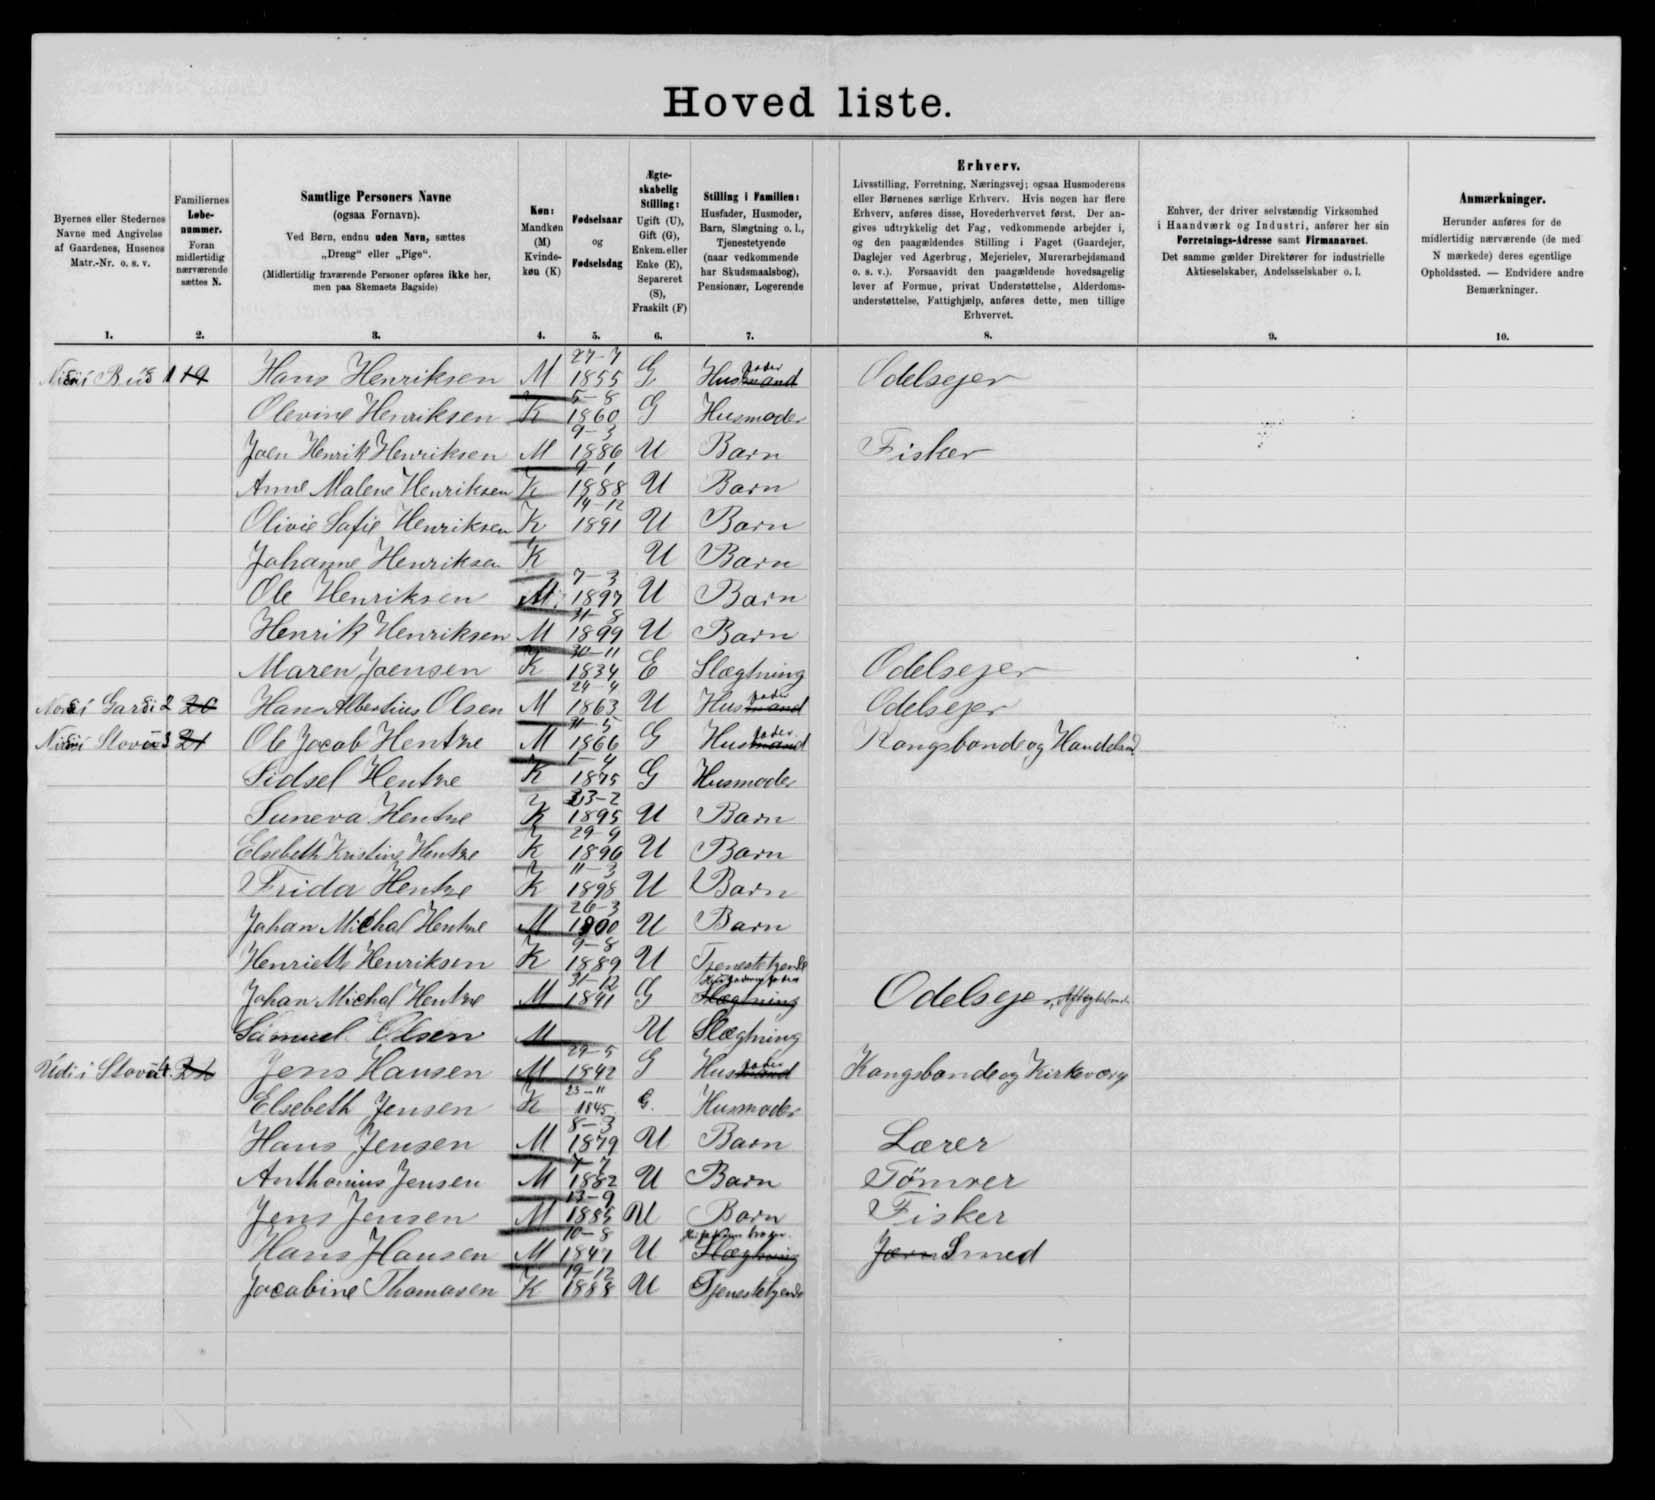 Hoved liste.
Byernes eller Stedernes Navne med Angivelse af Gaardenes, Husenes Matr.-Nr. o. s. v.
Familiernes Løbe-nummer. Foran midlertidig nærværende sættes N.
Samtlige Personers Navne (ogsaa Fornavn). Ved Børn, endnu uden Navn, sættes „Dreng“ eller „Pige“. (Midlertidig fraværende Personer opføres ikke her, men paa Skemaets Bagside)
Køn: Mandkøn (M) Kvinde-køn (K)
Fødselsaar og Fødselsdag
Ægte-skabelig Stilling: Ugift (U), Gift (G), Enkem. eller Enke (E), Separeret (S), Fraskilt (F)
Stilling i Familien: Husfader, Husmoder, Barn, Slægtning o. l., Tjenestetyende (naar vedkommende har Skudsmaalsbog), Pensionær, Logerende
Erhverv. Livsstilling, Forretning, Næringsvej; ogsaa Husmoderens eller Børnenes særlige Erhverv. Hvis nogen har flere Erhverv, anføres disse, Hovederhvervet først. Der an-gives udtrykkelig det Fag, vedkommende arbejder i, og den paagældendes Stilling i Faget (Gaardejer, Daglejer ved Agerbrug, Mejerielev, Murerarbejdsmand o. s. v.). Forsaavidt den paagældende hovedsagelig lever af Formue, privat Understøttelse, Alderdoms-understøttelse, Fattighjælp, anføres dette, men tillige Erhvervet.
Enhver, der driver selvstændig Virksomhed i Haandværk og Industri, anfører her sin Forretnings-Adresse samt Firmanavnet. Det samme gælder Direktører for industrielle Aktieselskaber, Andelsselskaber o. l.
Anmærkninger. Herunder anføres for de midlertidig nærværende (de med N mærkede) deres egentlige Opholdssted. — Endvidere andre Bemærkninger.
1. 2. 3. 4. 5. 6. 7. 8. 9. 10.
1 19 Hans Henriksen M 27-7 1855 G Husmand fader Odelsejer
Olevine Henriksen K 5-8 1860 G Husmoder
Joen Henrik Henriksen M 9-3 1886 U Barn Fisker
Anne Malene Henriksen K 9-1 1888 U Barn
Olivie Sofie Henriksen K 14-12 1891 U Barn
Johanne Henriksen K U Barn
Ole Henriksen M 7-3 1897 U Barn
Henrik Henriksen M 31-8 1899 U Barn
Maren Joensen K 30-11 1834 E Slægtning Odelsejer
2 20 Hans Albertius Olsen M 24-4 1863 U Husmand fader Odelsejer
3 21 Ole Jacob Hentze M 31-5 1866 G Husmand fader Kongsbonde og Handelsmd
Sidsel Hentze K 1-4 1875 G Husmoder
Suneva Hentze K 23-2 1895 U Barn
Elsebeth Kristine Hentze K 29-9 1896 U Barn
Frida Hentze K 11-3 1898 U Barn
Johan Michal Hentze M 26-3 1900 U Barn
Henriette Henriksen K 9-8 1889 U Tjenestetyende
Johan Michal Hentze M 31-12 1841 G Slægtning Odelsejer
Samuel Olsen M U Slægtning
Udi i Stovu 4 22 Jens Hansen M 29-5 1842 G Husmand fader Kongsbonde og Kirkeværge
Elsebeth Jensen K 23-11 1845 G. Husmoder
Hans Jensen M 8-3 1879 U Barn Lærer
Anthonius Jensen M 7-7 1882 U Barn Tömrer
Jens Jensen M 13-9 1885 U Barn Fisker
Hans Hansen M 10-8 1847 U Slægtning Jærn Smed
Jacobine Thomasen K 19-12 1888 U Tjenestetyende